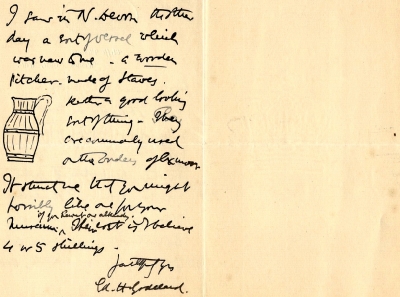 I saw in N. Devon the other
day a sort of vessel which
was new to me - a wooden
pitcher - made of staves.
rather a good looking
sort of thing - They
are commonly used
on the borders of Exmoor
It struck me that you might
possibly like one for your
if you haven't one already.
Museum. Their cost is I believe
4 or 5 shillings -
Faithfully yrs
Ed. H. Goddard.